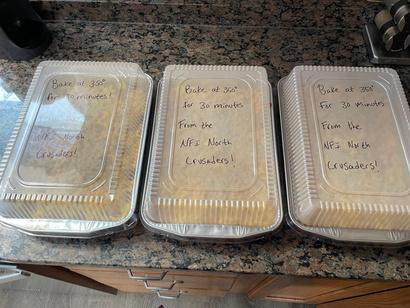 Bake at 350°
for 30 minutes!
NFJ North
Crusaders!
Bake at 350°
for 30 minutes
From the
NFJ North
Crusaders!
Bake at 350°
for 30 minutes
From the
NFJ North
Crusaders!